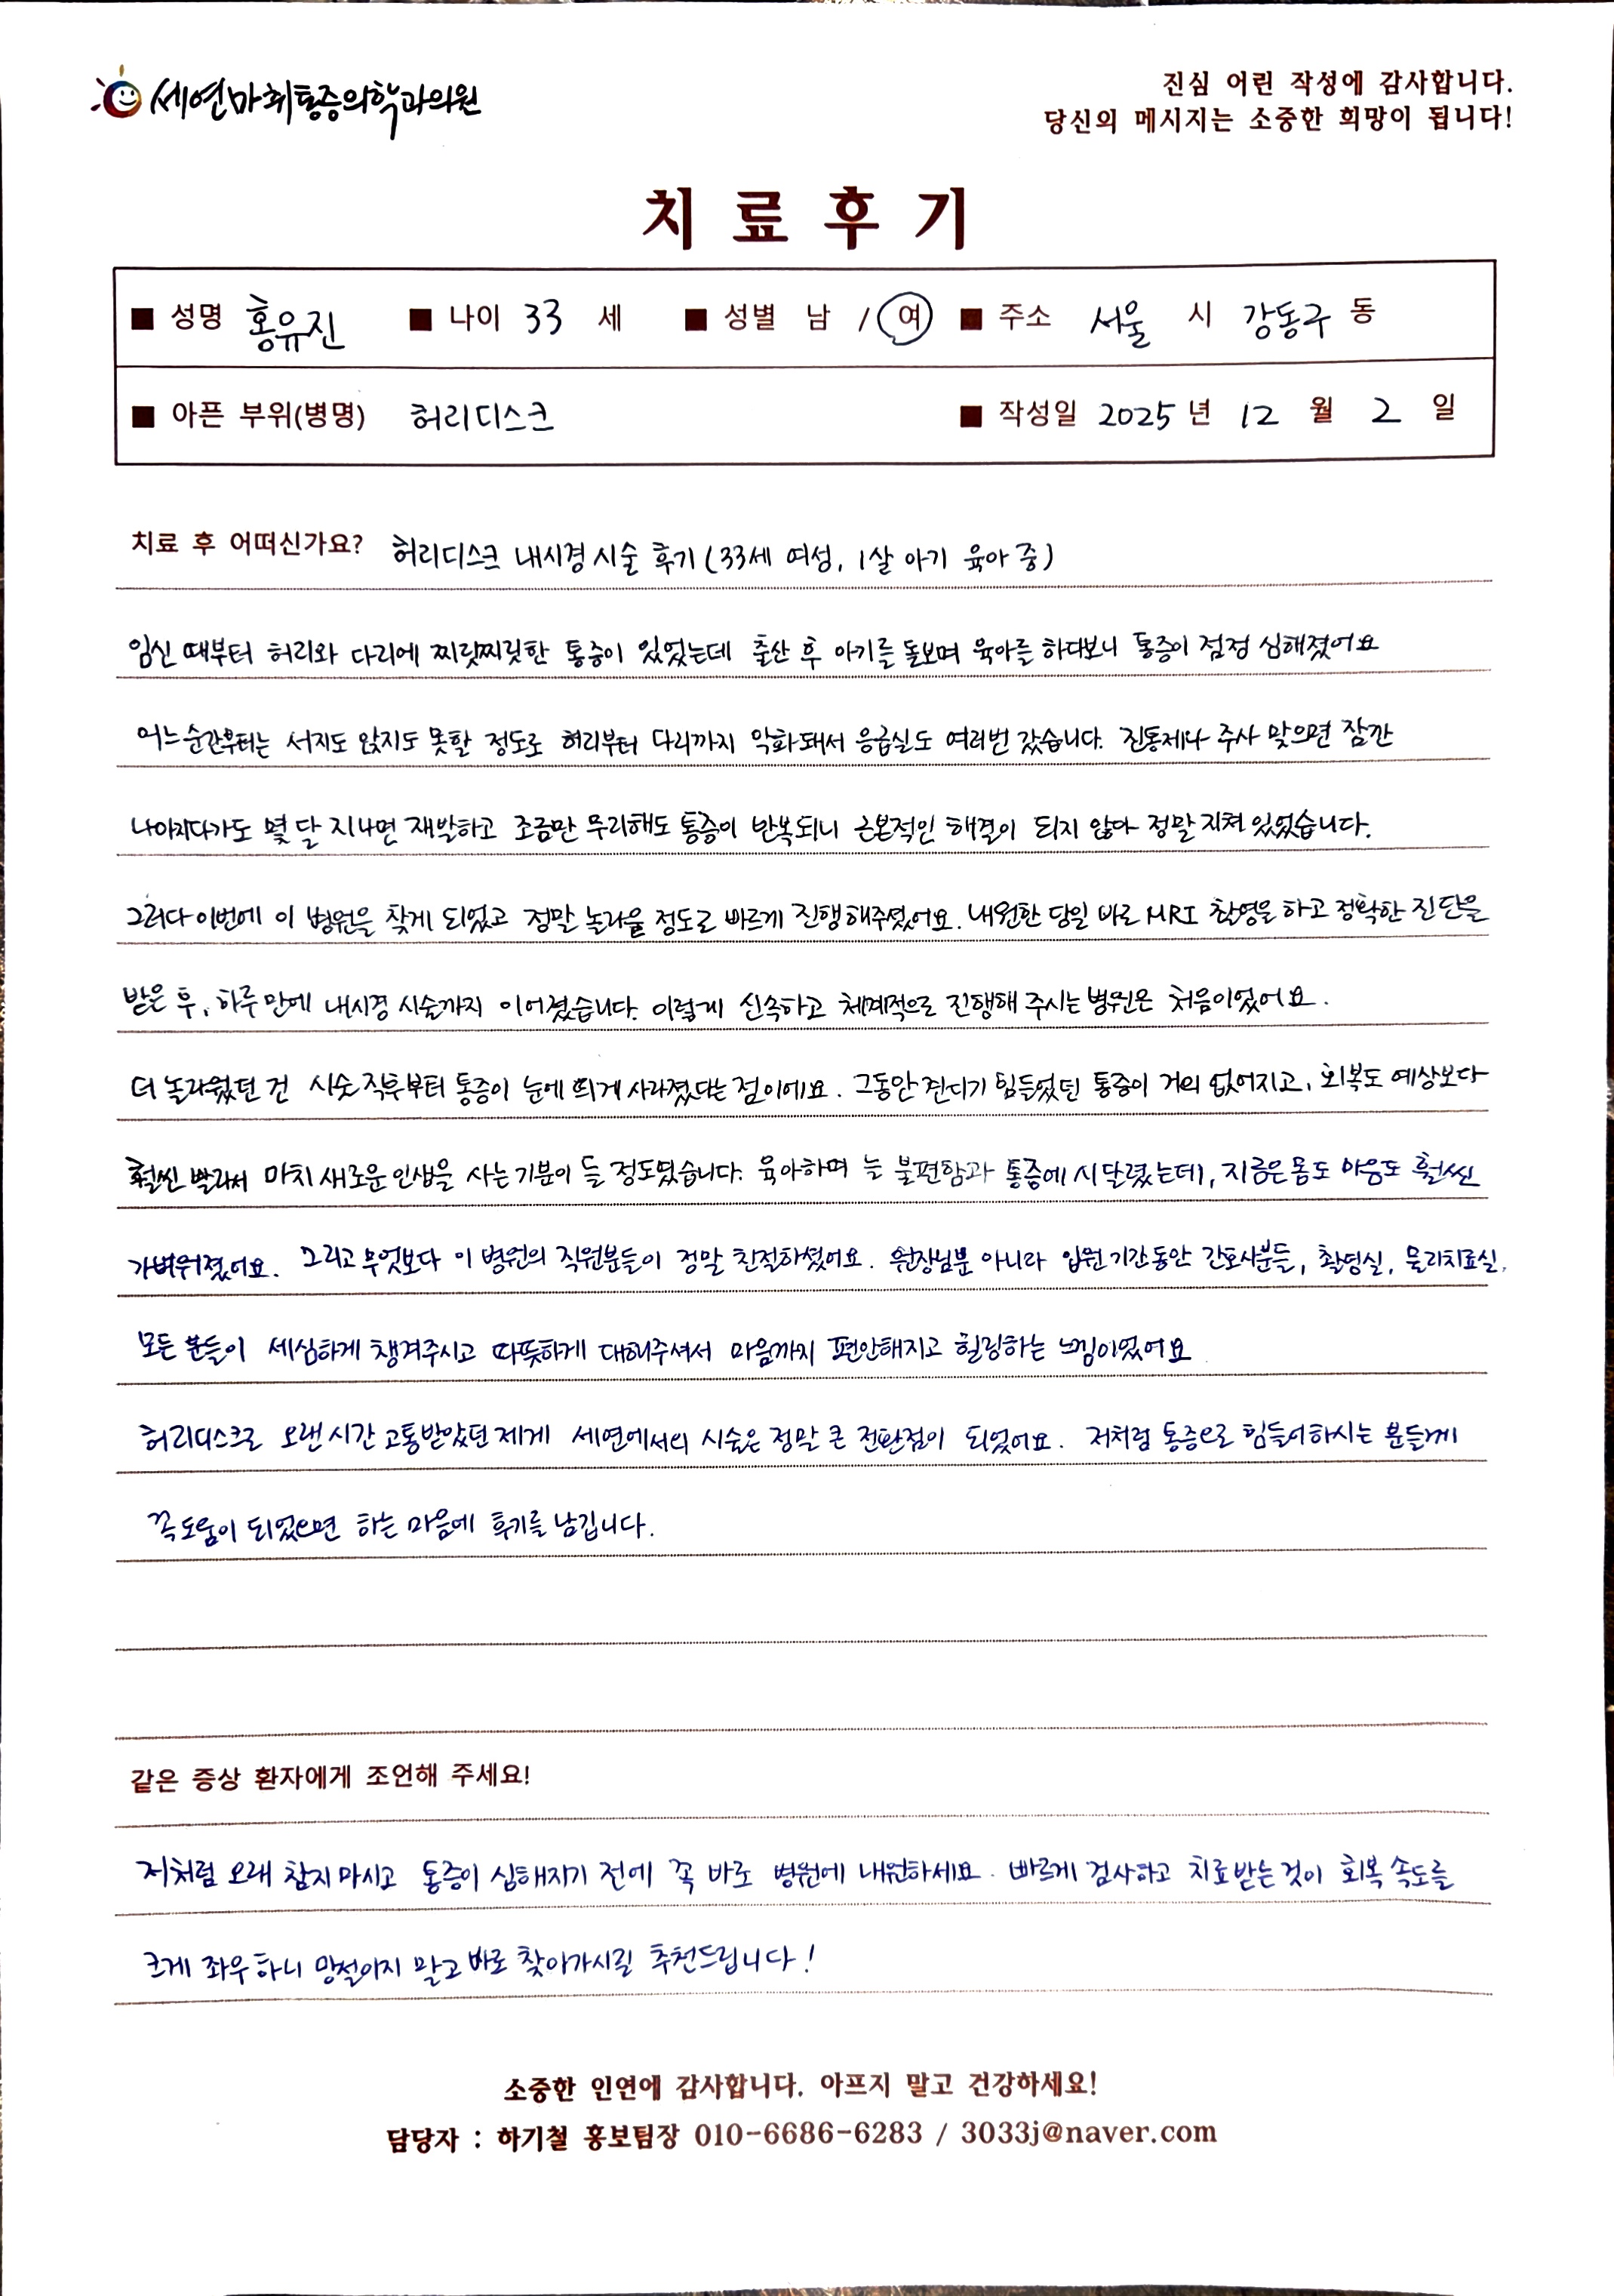 세연마취통증의학과의원
진심 어린 작성에 감사합니다.
당신의 메시지는 소중한 희망이 됩니다!
치료후기
■ 성명 홍유진 ■ 나이 33 세 ■ 성별 남 / 여 ■ 주소 서울 시 강동구 동
■ 아픈 부위(병명) 허리디스크 ■ 작성일 2025 년 12 월 2 일
치료 후 어떠신가요? 허리디스크 내시경 시술 후기 (33세 여성, 1살 아기 육아 중)
임신 때부터 허리와 다리에 찌릿찌릿한 통증이 있었는데 출산 후 아기를 돌보며 육아를 하다보니 통증이 점점 심해졌어요
어느순간부터는 서지도 앉지도 못할 정도로 허리부터 다리까지 악화돼서 응급실도 여러번 갔습니다. 진통제나 주사 맞으면 잠깐
나아지다가도 몇 달 지나면 재발하고 조금만 무리해도 통증이 반복되니 근본적인 해결이 되지 않아 정말 지쳐 있었습니다.
그러다 이번에 이 병원을 찾게 되었고 정말 놀라울 정도로 빠르게 진행해주셨어요. 내원한 당일 바로 MRI 촬영을 하고 정확한 진단을
받은 후, 하루 만에 내시경 시술까지 이어졌습니다. 이렇게 신속하고 체계적으로 진행해 주시는 병원은 처음이었어요.
더 놀라웠던 건 시술 직후부터 통증이 눈에 띄게 사라졌다는 점이에요. 그동안 견디기 힘들었던 통증이 거의 없어지고, 회복도 예상보다
훨씬 빨라서 마치 새로운 인생을 사는 기분이 들 정도였습니다. 육아하며 늘 불편함과 통증에 시달렸는데, 지금은 몸도 마음도 훨씬
가벼워졌어요. 그리고 무엇보다 이 병원의 직원분들이 정말 친절하셨어요. 원장님뿐 아니라 입원 기간동안 간호사분들, 촬영실, 물리치료실,
모든 분들이 세심하게 챙겨주시고 따뜻하게 대해주셔서 마음까지 편안해지고 힐링하는 느낌이었어요
허리디스크로 오랜 시간 고통받았던 제게 세연에서의 시술은 정말 큰 전환점이 되었어요. 저처럼 통증으로 힘들어하시는 분들께
꼭 도움이 되었으면 하는 마음에 후기를 남깁니다.
같은 증상 환자에게 조언해 주세요!
저처럼 오래 참지 마시고 통증이 심해지기 전에 꼭 바로 병원에 내원하세요. 빠르게 검사하고 치료받는 것이 회복 속도를
크게 좌우하니 망설이지 말고 바로 찾아가시길 추천드립니다!
소중한 인연에 감사합니다. 아프지 말고 건강하세요!
담당자 : 하기철 홍보팀장 010-6686-6283 / 3033j@naver.com